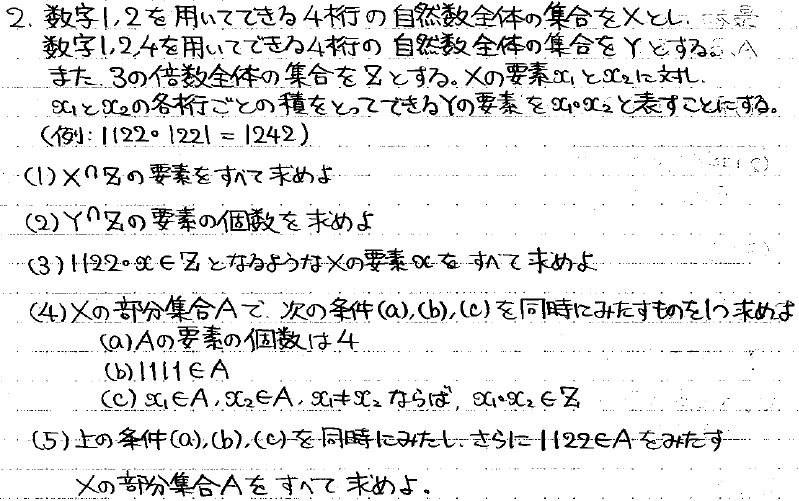 2. 数字1,2を用いてできる4桁の自然数全体の集合をXとし、
数字1,2,4を用いてできる4桁の自然数全体の集合をYとする。
また 3の倍数全体の集合をZとする。Xの要素x₁とx₂に対し、
x₁とx₂の各桁ごとの積をとってできるYの要素をx₁∘x₂と表すことにする。
(例: 1122∘1221 = 1242)
(1) X∩Zの要素をすべて求めよ
(2) Y∩Zの要素の個数を求めよ
(3) 1122∘x∈ZとなるようなXの要素xを すべて求めよ
(4) Xの部分集合Aで、次の条件(a),(b),(c)を同時にみたすものを1つ求めよ
(a) Aの要素の個数は4
(b) 1111∈A
(c) x₁∈A, x₂∈A, x₁≠x₂ ならば, x₁∘x₂∈Z
(5) 上の条件(a),(b),(c)を同時にみたし、さらに1122∈Aをみたす
Xの部分集合Aをすべて求めよ。